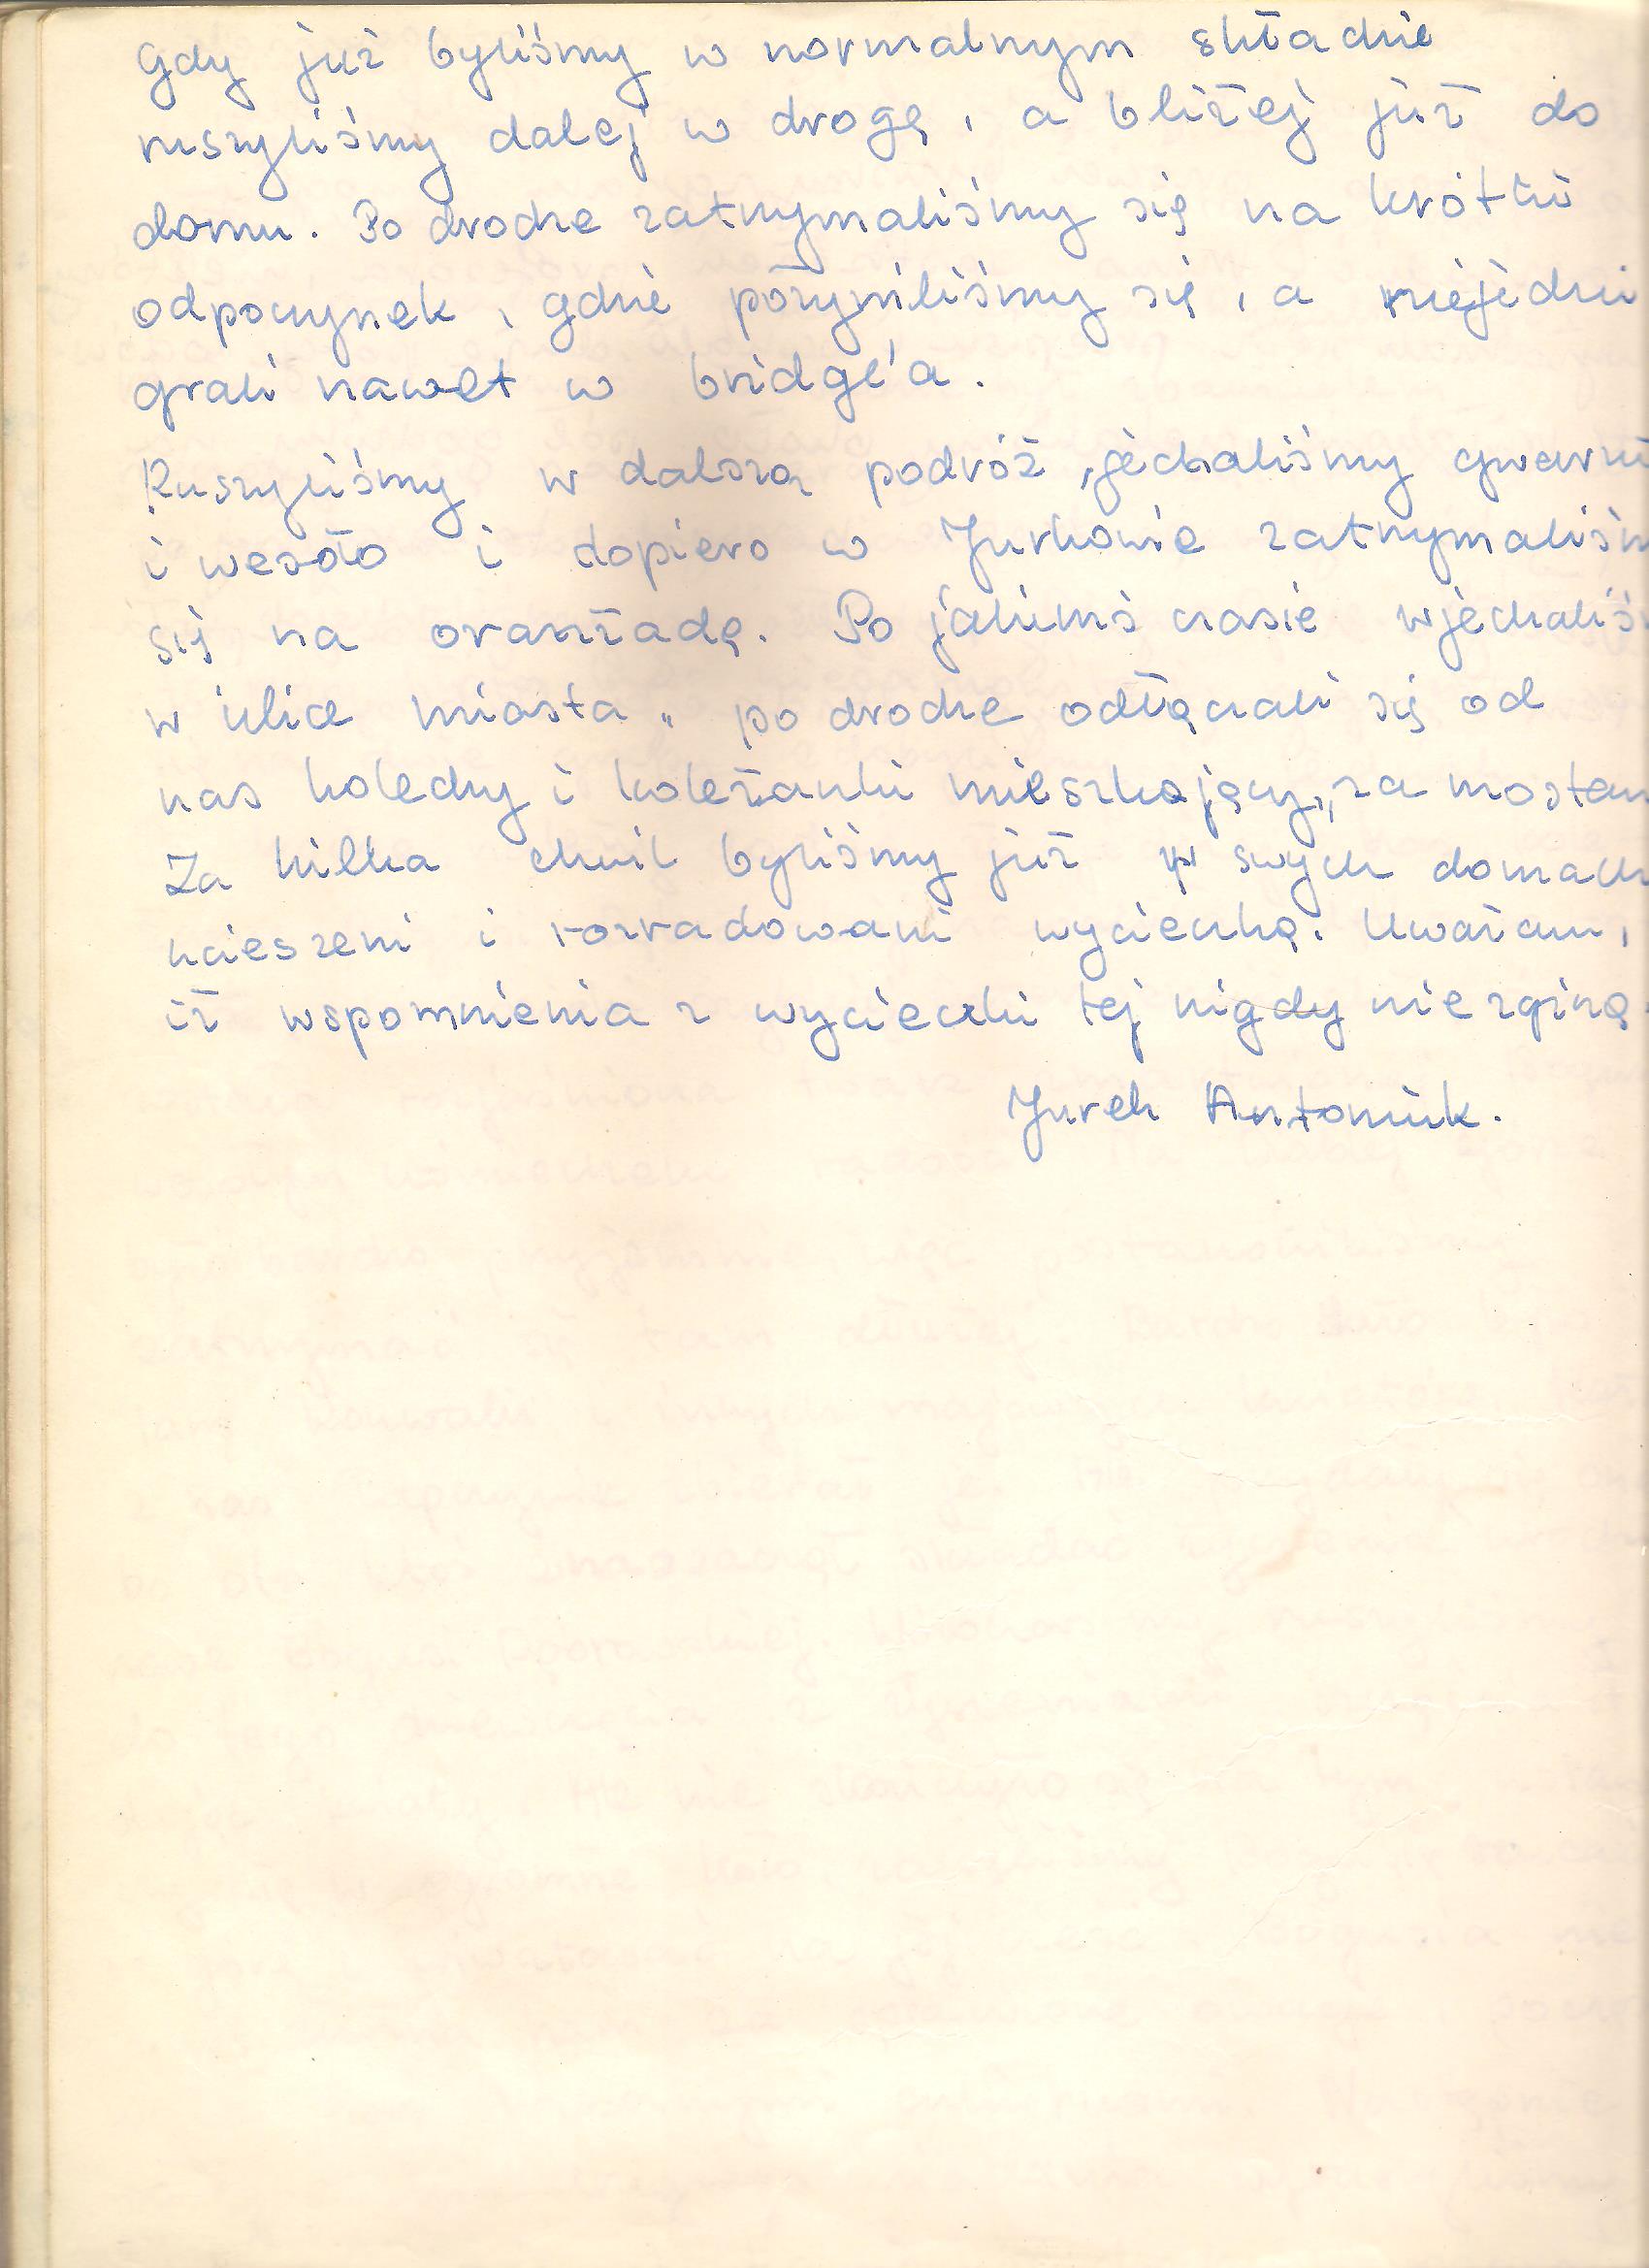 Gdy już byliśmy w normalnym składzie
ruszyliśmy dalej w drogę, a bliżej już do
domu. Po drodze zatrzymaliśmy się na krótki
odpoczynek, gdzie pożywiliśmy się, a niejedni
grali nawet w bridge'a.
Ruszyliśmy w dalszą podróż, jechaliśmy gwarni
i wesoło i dopiero w Jurkowie zatrzymaliśm
się na oranżadę. Po jakimś czasie wjechaliś
w ulice miasta, po drodze odłączali się od
nas koledzy i koleżanki mieszkający „za mostem
Za kilka chwil byliśmy już w swych domach
ucieszeni i rozradowani wycieczką. Uważam,
iż wspomnienia z wycieczki tej nigdy nie zginą.
Jurek Antoniuk.